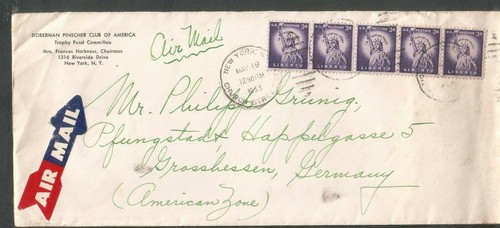 DOBERMAN PINSCHER CLUB OF AMERICA
Trophy Fund Committee
Mrs. Frances Harkness, Chairman
1316 Riverside Drive
New York, N. Y.
Air Mail
NEW YORK, N.Y.
MAY 19
12:30 PM
1955
U.S. POSTAGE 3¢
LIBERTY
U.S. POSTAGE 3¢
LIBERTY
U.S. POSTAGE 3¢
LIBERTY
U.S. POSTAGE 3¢
LIBERTY
U.S. POSTAGE 3¢
LIBERTY
AIR MAIL
Mr. Philipp Grünig,
Pfungstadt Happelgasse 5
Grosshessen, Germany
(American Zone)